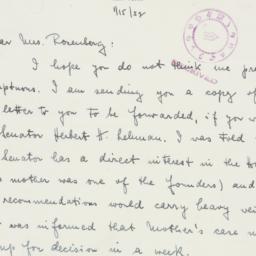 9/15/52
ar Mrs. Rosenberg:
I hope you do not think me pre
ptuous. I am sending you a copy of
letter to you to be forwarded, if you w
Senator Herbert H. Lehman. I was told
Senator has a direct interest in the Ho
mother was one of the founders) and
recommendations would carry heavy wei
was informed that Mother's case w
up for decision in a week.
RECEIVED